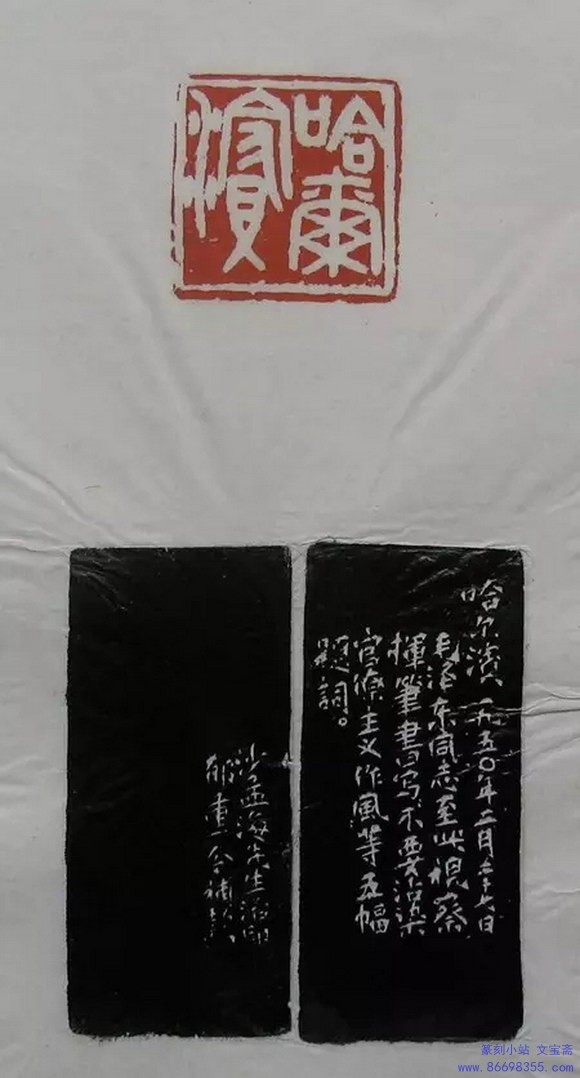 哈爾
濱
哈尔滨 一九五〇年二月二十七日
毛泽东同志至此視察
揮筆書写不要沾染
官僚主义作風等五幅
题詞。
沙孟海先生治印
郁重今補款
篆刻小站 文宝斋
www.86698355.com